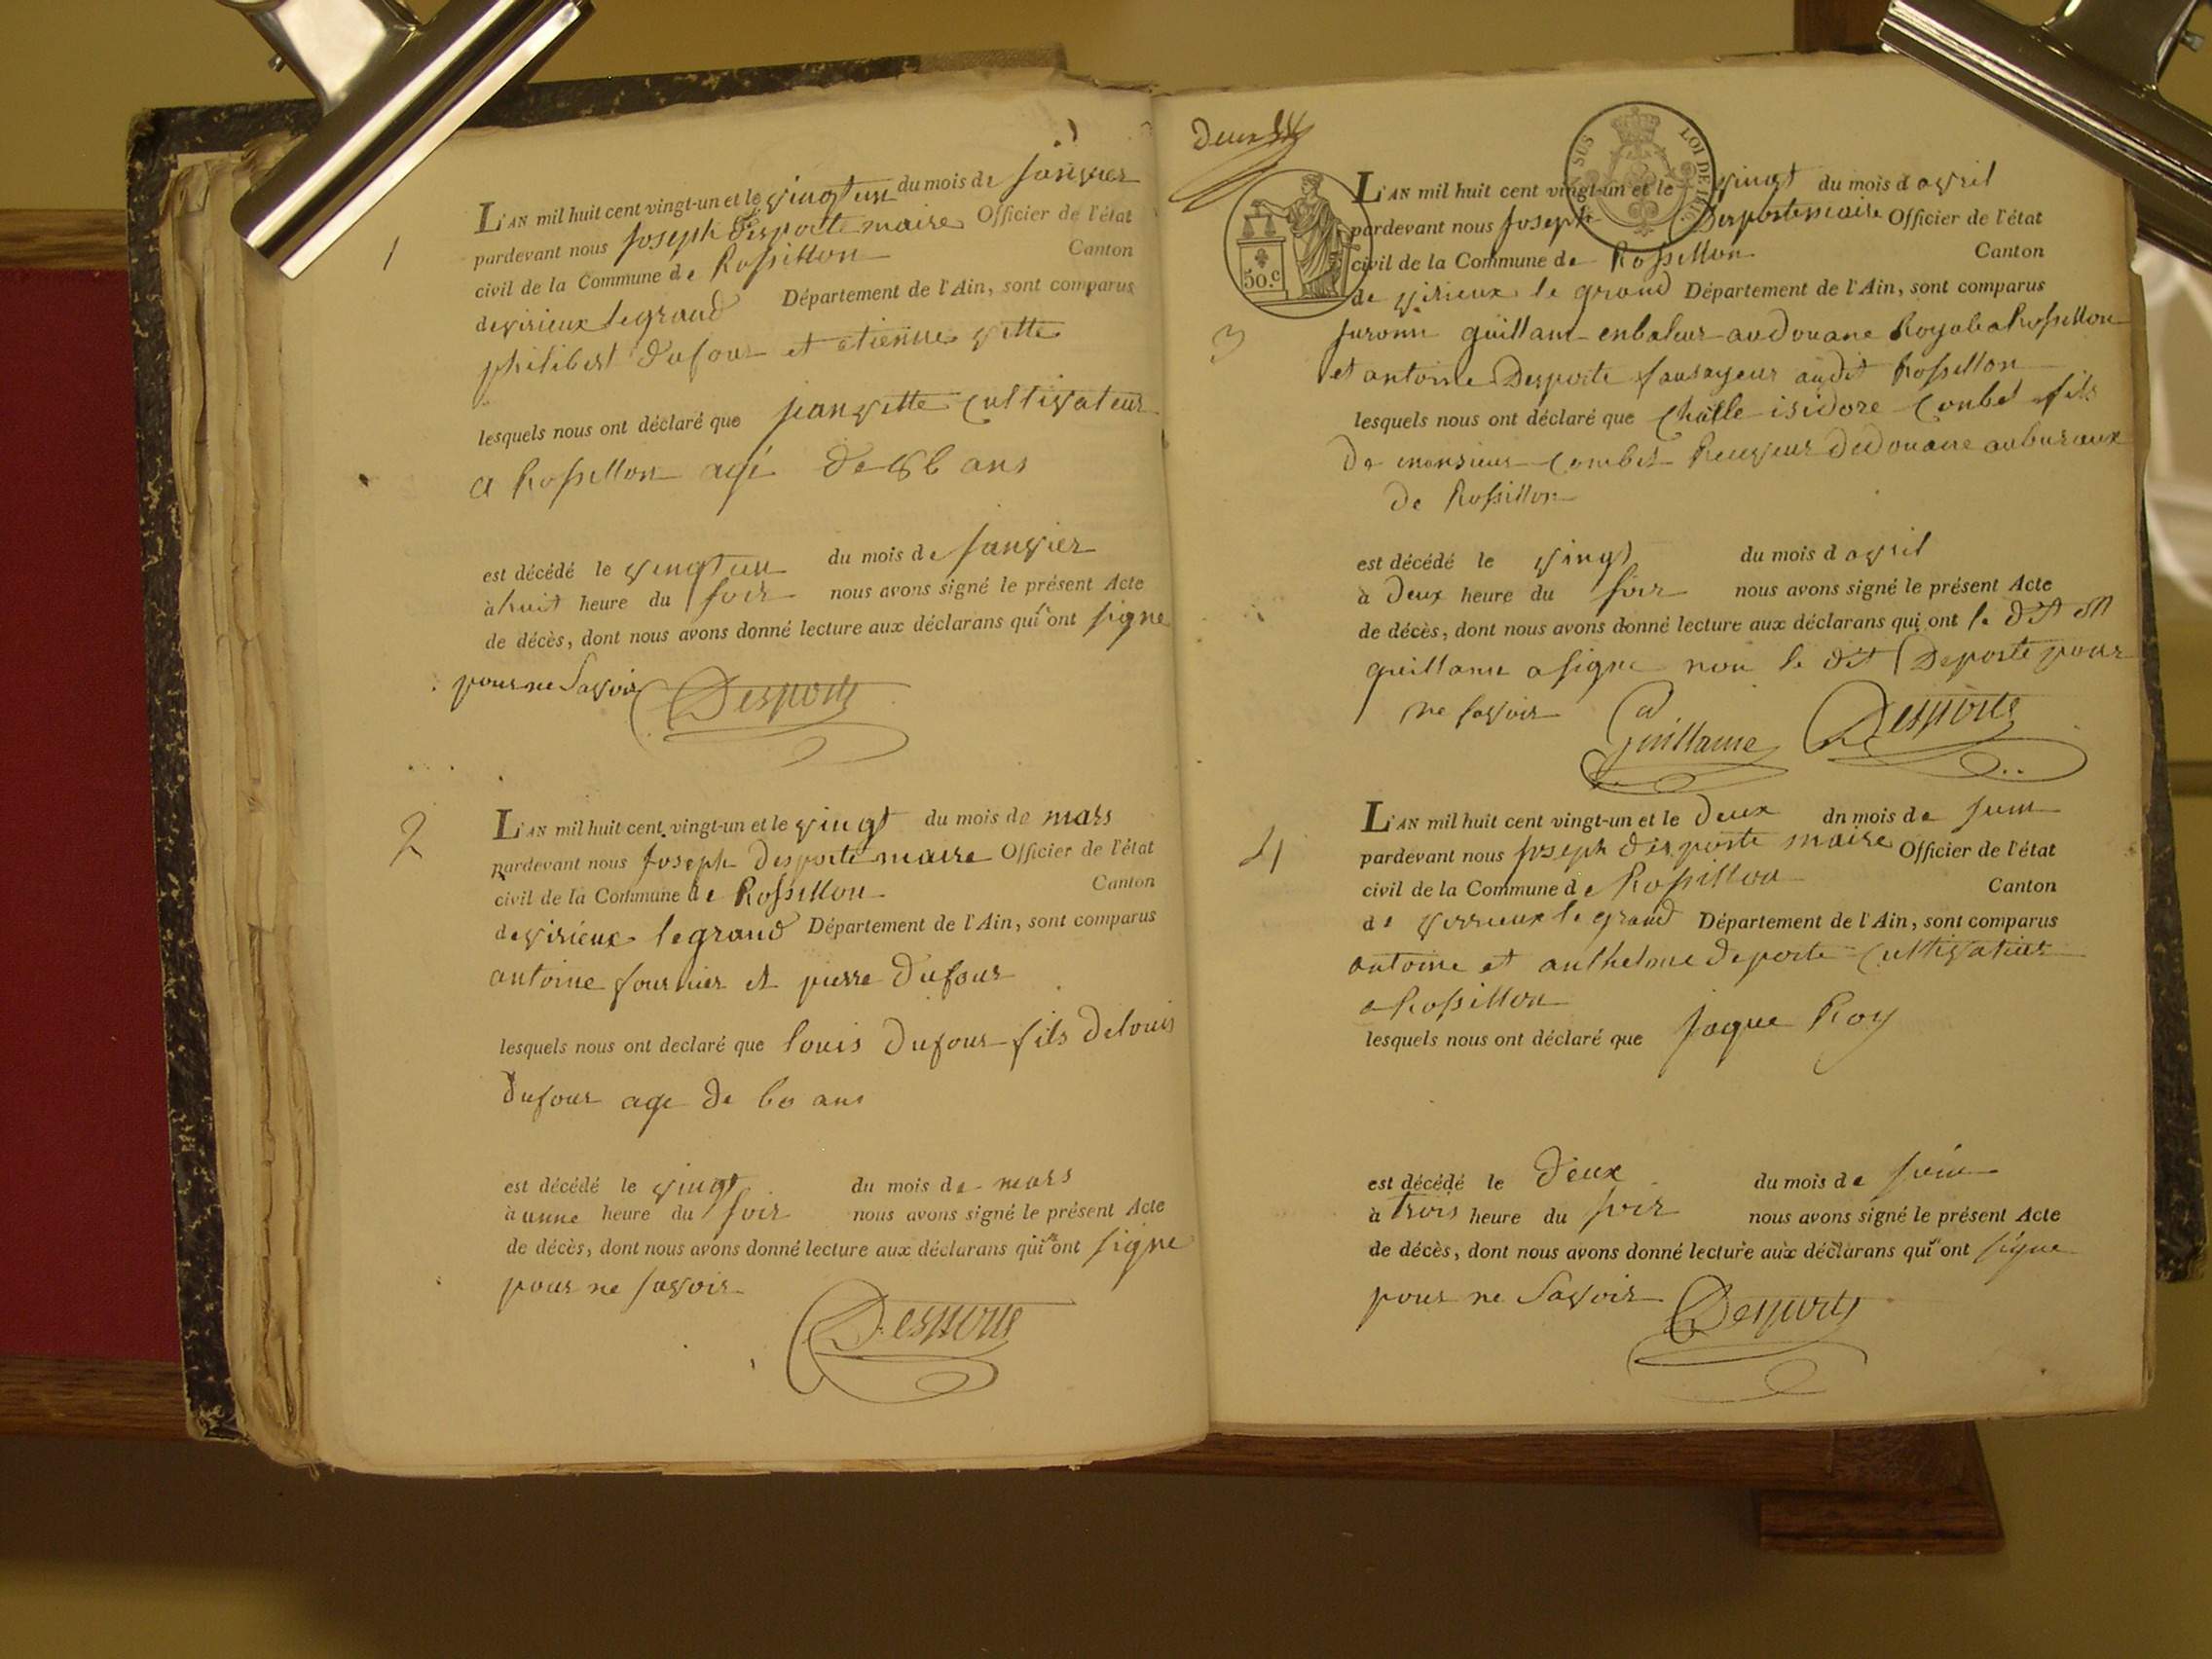 1
L'AN mil huit cent vingt-un et le vingt un du mois de janvier
pardevant nous joseph Desporte maire Officier de l'état
civil de la Commune de Rossillon Canton
de virieux le grand Département de l'Ain, sont comparus
philibert dufour et etienne vitte
lesquels nous ont déclaré que jean vitte cultivateur
a Rossillon agé de ans
est décédé le vingt un du mois de janvier
à huit heure du soir nous avons signé le présent Acte
de décès, dont nous avons donné lecture aux déclarans qui n ont signe
pour ne savoir Desporte
2
L'AN mil huit cent vingt-un et le vingt du mois de mars
pardevant nous joseph Desporte maire Officier de l'état
civil de la Commune de Rossillon Canton
de virieux le grand Département de l'Ain, sont comparus
antoine fournier et pierre Dufour
lesquels nous ont declaré que louis Dufour fils de louis
Dufour age de 60 ans
est décédé le vingt du mois de mars
à unne heure du soir nous avons signé le présent Acte
de décès, dont nous avons donné lecture aux déclarans qui n ont signe
pour ne savoir
Desporte
deux
SUS LOI DE
50.c
3
L'AN mil huit cent vingt-un et le vingt du mois d avril
pardevant nous joseph Desporte maire Officier de l'état
civil de la Commune de Rossillon Canton
de virieux le grand Département de l'Ain, sont comparus
guillaume enbaleur au douane Royale a Rossillon
et antoine Desporte audit Rossillon
lesquels nous ont déclaré que isidore Combet fils
de monsieur Combet Receveur de douane au buraux
de Rossillon
est décédé le vingt du mois d avril
à Deux heure du soir nous avons signé le présent Acte
de décès, dont nous avons donné lecture aux déclarans qui ont le dit
guillame a signe non le dit Deporte pour
ne savoir Guillaume Desporte
4
L'AN mil huit cent vingt-un et le Deux dn mois de juin
pardevant nous joseph desporte maire Officier de l'état
civil de la Commune de Rossillon Canton
de virrieux le grand Département de l'Ain, sont comparus
antoine et anthelme deporte Cultivateur
a Rossillon
lesquels nous ont déclaré que jaque Roy
est décédé le deux du mois de juin
à trois heure du soir nous avons signé le présent Acte
de décès, dont nous avons donné lecture aux déclarans qui n ont signe
pour ne savoir Desporte